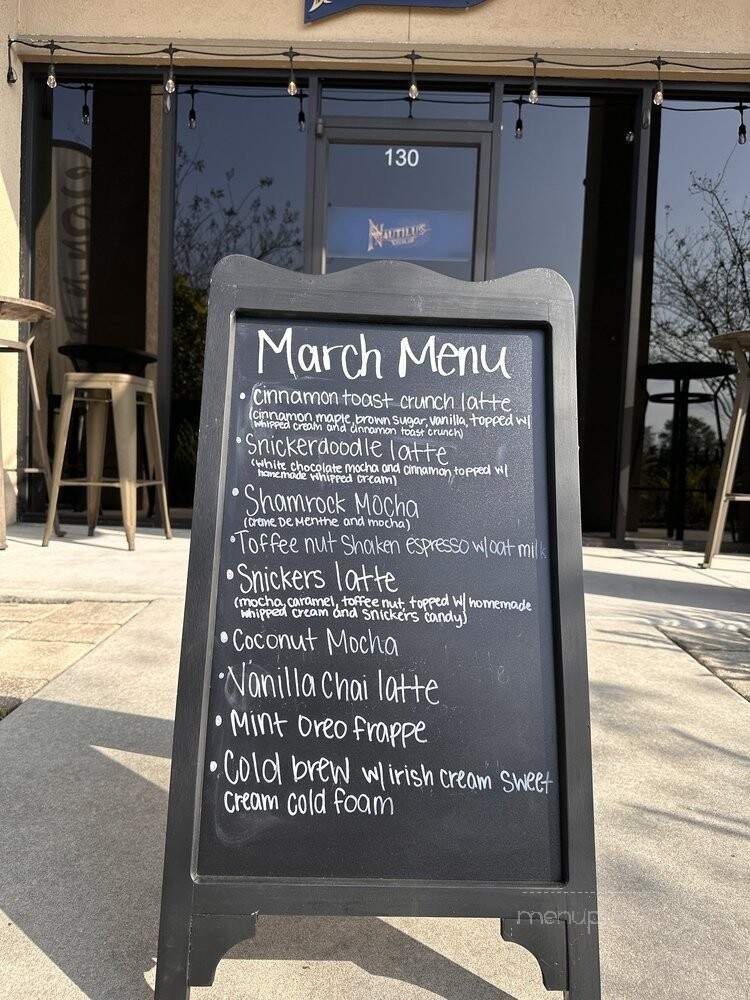 130
NAUTILUS
March Menu
• Cinnamon toast crunch latte
(cinnamon maple, brown sugar, vanilla, topped w/
whipped cream and cinnamon toast crunch)
• Snickerdoodle latte
(white chocolate mocha and cinnamon, topped w/
homemade whipped cream)
• Shamrock Mocha
(creme De Menthe and mocha)
• Toffee nut Shaken espresso w/oat milk
• Snickers latte
(mocha, caramel, toffee nut, topped w/ homemade
whipped cream and snickers candy)
• Coconut Mocha
• Vanilla Chai latte
• Mint Oreo frappe
• Cold brew w/irish cream sweet
cream cold foam
menup